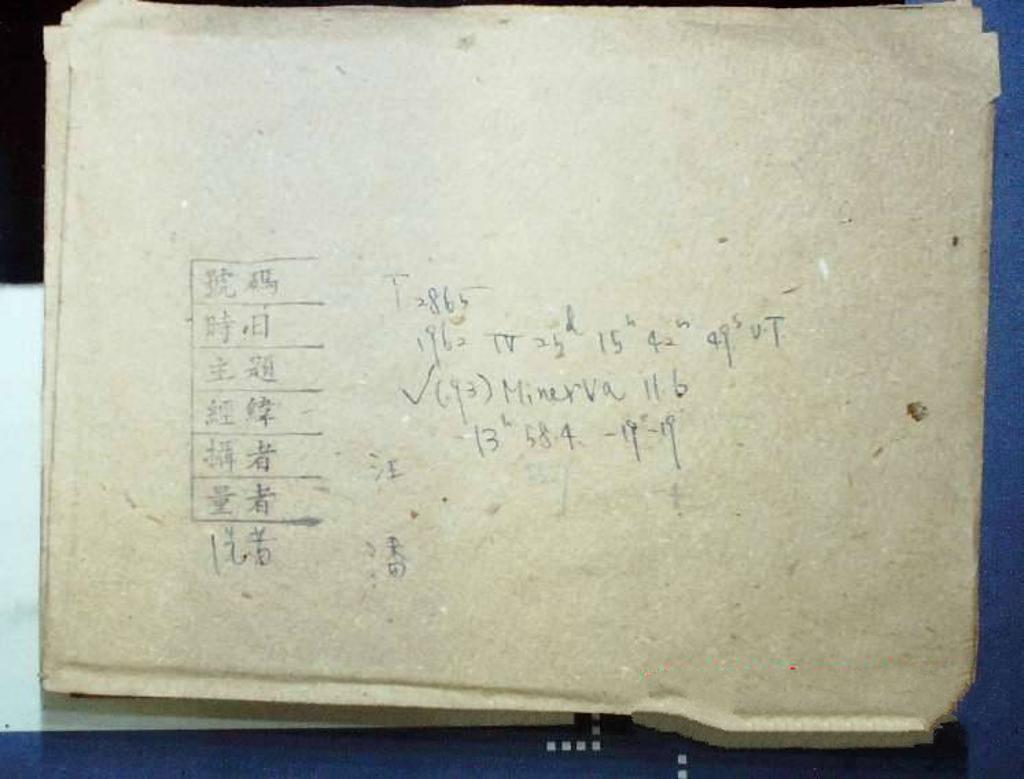 號碼 T 2865
時日 1962 IV 25d 15h 42m 49s U.T.
主題 √(93) Minerva 11.6
經緯 -13h 58.4 -19°-19'
攝者 汪
量者
洗者 潘